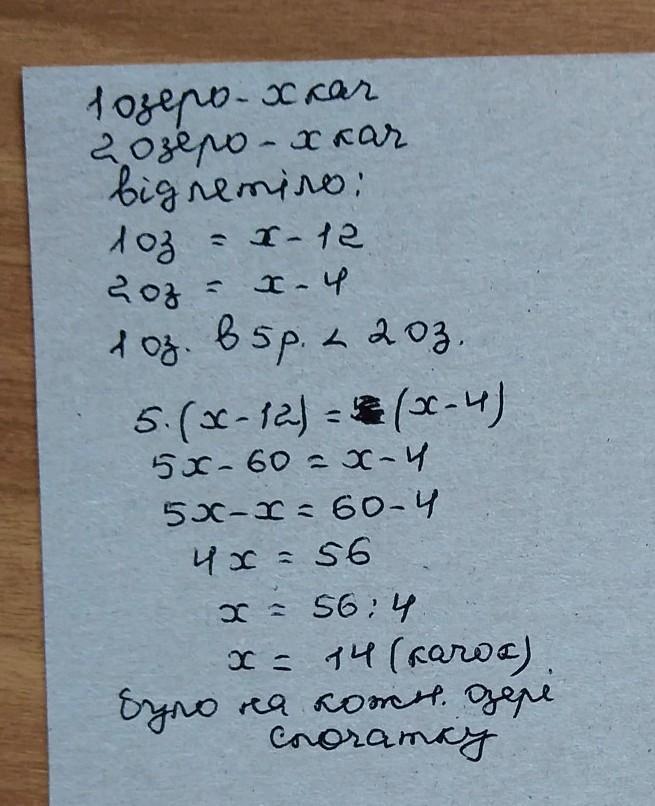 1 озеро - х кач
2 озеро - х кач
відлетіло:
1 оз = х - 12
2 оз = х - 4
1 оз. в 5 р. < 2 оз.
5·(х-12) = (х-4)
5х - 60 = х - 4
5х - х = 60 - 4
4х = 56
х = 56 : 4
х = 14 (качок)
було на кожн. озері
спочатку